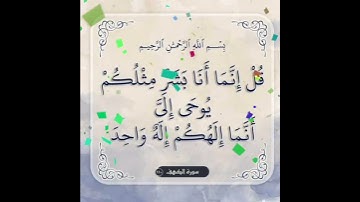 بِسْمِ اللَّهِ الرَّحْمَٰنِ الرَّحِيمِ
قُلْ إِنَّمَا أَنَا بَشَرٌ مِثْلُكُمْ
يُوحَى إِلَيَّ
أَنَّمَا إِلَهُكُمْ إِلَهٌ وَاحِدٌ
سورة الكهف